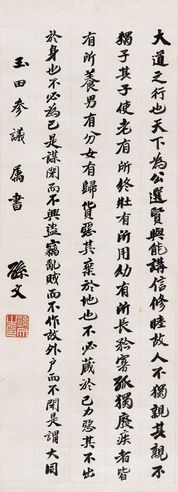 大道之行也天下為公選賢與能講信修睦故人不獨親其親不
獨子其子使老有所終壯有所用幼有所長矜寡孤獨廢疾者皆
有所養男有分女有歸貨惡其棄於地也不必藏於己力惡其不出
於身也不必為己是謀閉而不興盜竊亂賊而不作故外戶而不閉是謂大同
玉田參議屬書 孫文